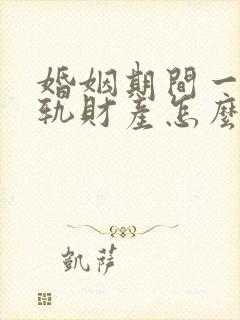 婚姻期間一
軌財產怎麼
凱薩